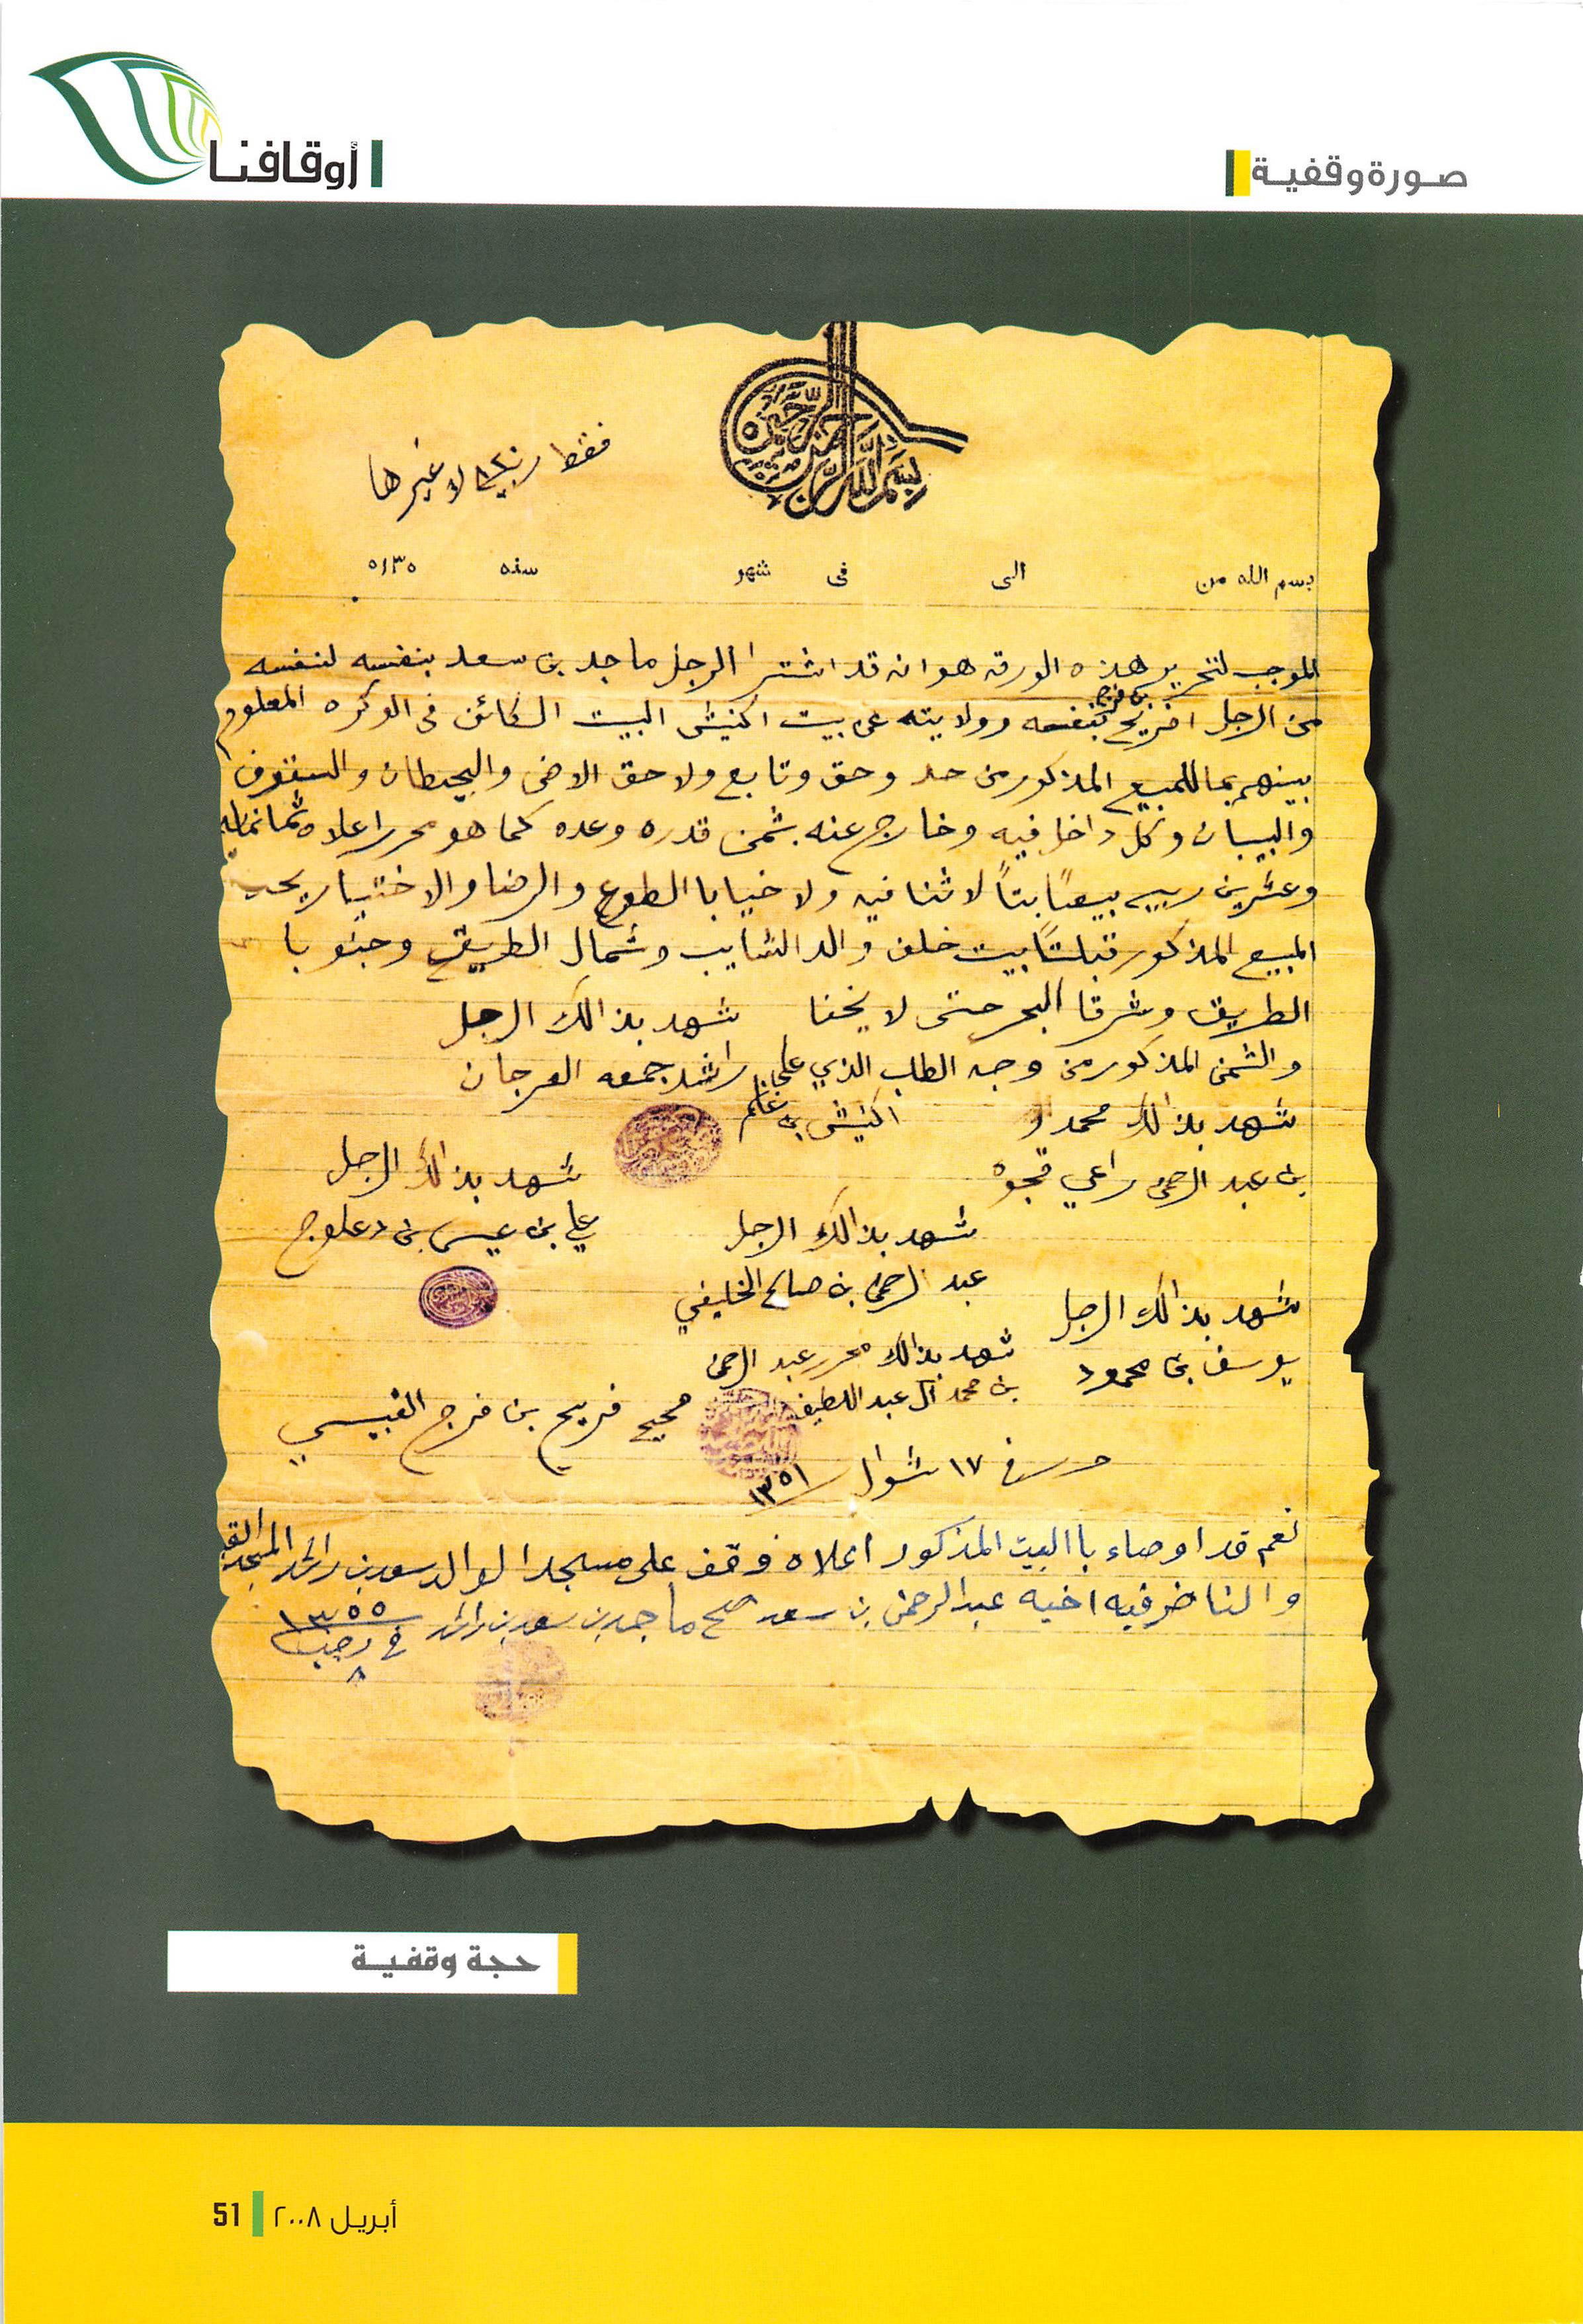 صورة وقفية
أوقافنا
بسم الله الرحمن الرحيم
فقط ربية ٨٢٠ لا غيرها
بسم الله من الى فى شهر سنه ١٣٥
الموجب لتحرير هذه الورقه هوانه قد اشترا الرجل ماجد بن سعد بنفسه لنفسه
من الرجل افريح بن فرج بنفسه وولايته عن بيت اكنيش البيت الكائن فى الوكره المعلوم
بينهم بما للمبيع المذكور من حد وحق وتابع ولاحق الارض والحيطان والسقوف
والبيبان وكل داخل فيه وخارج عنه بثمن قدره وعده كما هو محرر اعلاه ثمانمايه
وعشرين ربيه بيعًا بتاً لا ثنا فيه ولا خيا با الطوع والرضا والاختيار يحد
المبيع المذكور قبلتاً بيت خلف والد الشايب وشمال الطريق وجنوبا
الطريق وشرقا البحر حتى لا يخفا شهد بذالك الرجل
والثمن المذكور من وجه الطلب الذي على راشد جمعه العرجان
اكنيش بن غانم
شهد بذالك محمد
بن عبد الرحمن راعي قجوه
شهد بذالك الرجل
علي بن عيسى بن دعلوج
شهد بذالك الرجل
عبد الرحمن بن صالح الخليفي
شهد بذالك الرجل
يوسف بن محمود
شهد بذالك محرر عبد الرحمن
بن محمد آل عبد اللطيف
صحيح فريح بن فرج القبيسي
حرر في ١٧ شوال ١٣٥١
نعم قد اوصاء با البيت المذكور اعلاه وقف على مسجد الوالد سعد بن راشد المسجد
والناضر فيه اخيه عبد الرحمن بن سعد صح ماجد بن سعد بن راشد في رجب ٨ ١٣٥٥
حجة وقفية
أبريل ٢٠٠٨ 51